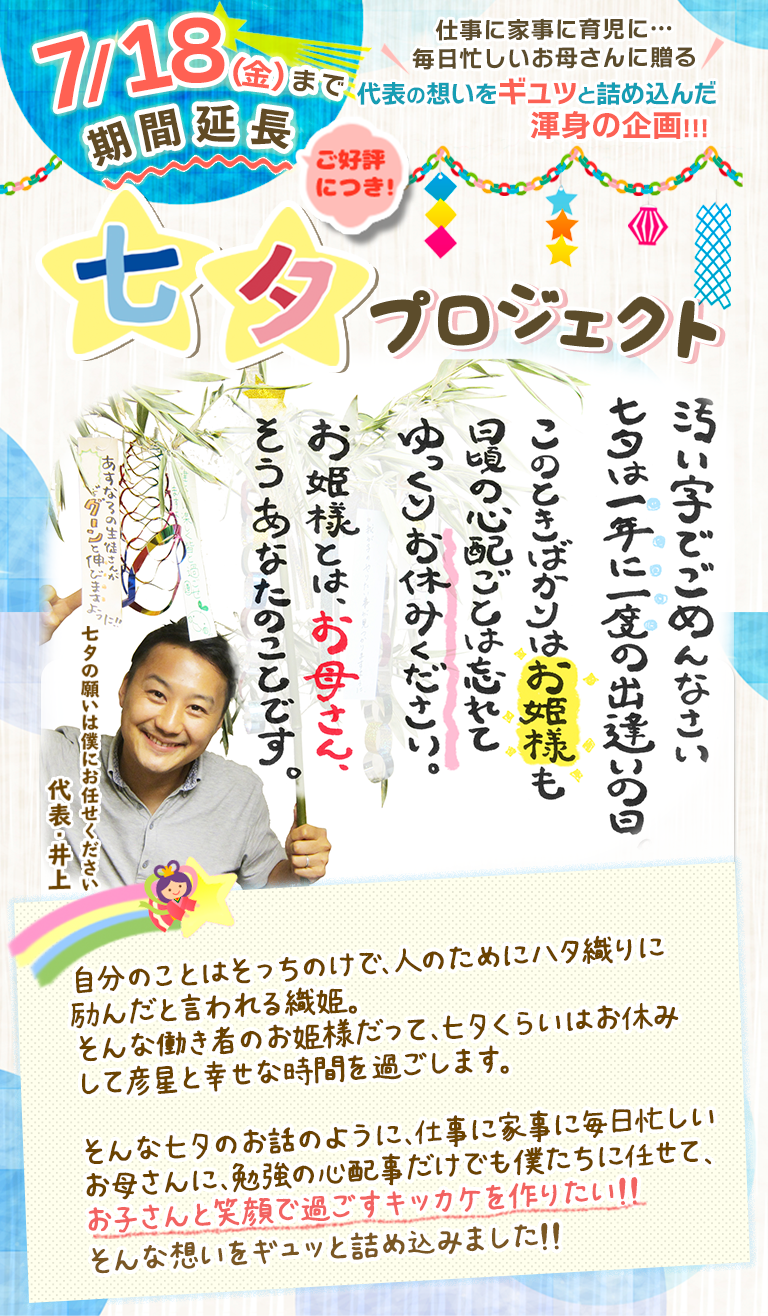 7/18(金)まで
期間延長
仕事に家事に育児に…
毎日忙しいお母さんに贈る
代表の想いをギュッと詰め込んだ
渾身の企画!!!
ご好評
につき!
七夕
プロジェクト
汚い字でごめんなさい
七夕は一年に一度の出逢いの日
このときばかりはお姫様も
日頃の心配ごとは忘れて
ゆっくりお休みください。
お姫様とは、お母さん、
そうあなたのことです。
あすなろの生徒さんが
グーンと伸びます
ように!!
七夕の願いは僕にお任せください
代表・井上
自分のことはそっちのけで、人のためにハタ織りに
励んだと言われる織姫。
そんな働き者のお姫様だって、七夕くらいはお休み
して彦星と幸せな時間を過ごします。
そんな七夕のお話のように、仕事に家事に毎日忙しい
お母さんに、勉強の心配事だけでも僕たちに任せて、
お子さんと笑顔で過ごすキッカケを作りたい!!
そんな想いをギュッと詰め込みました!!